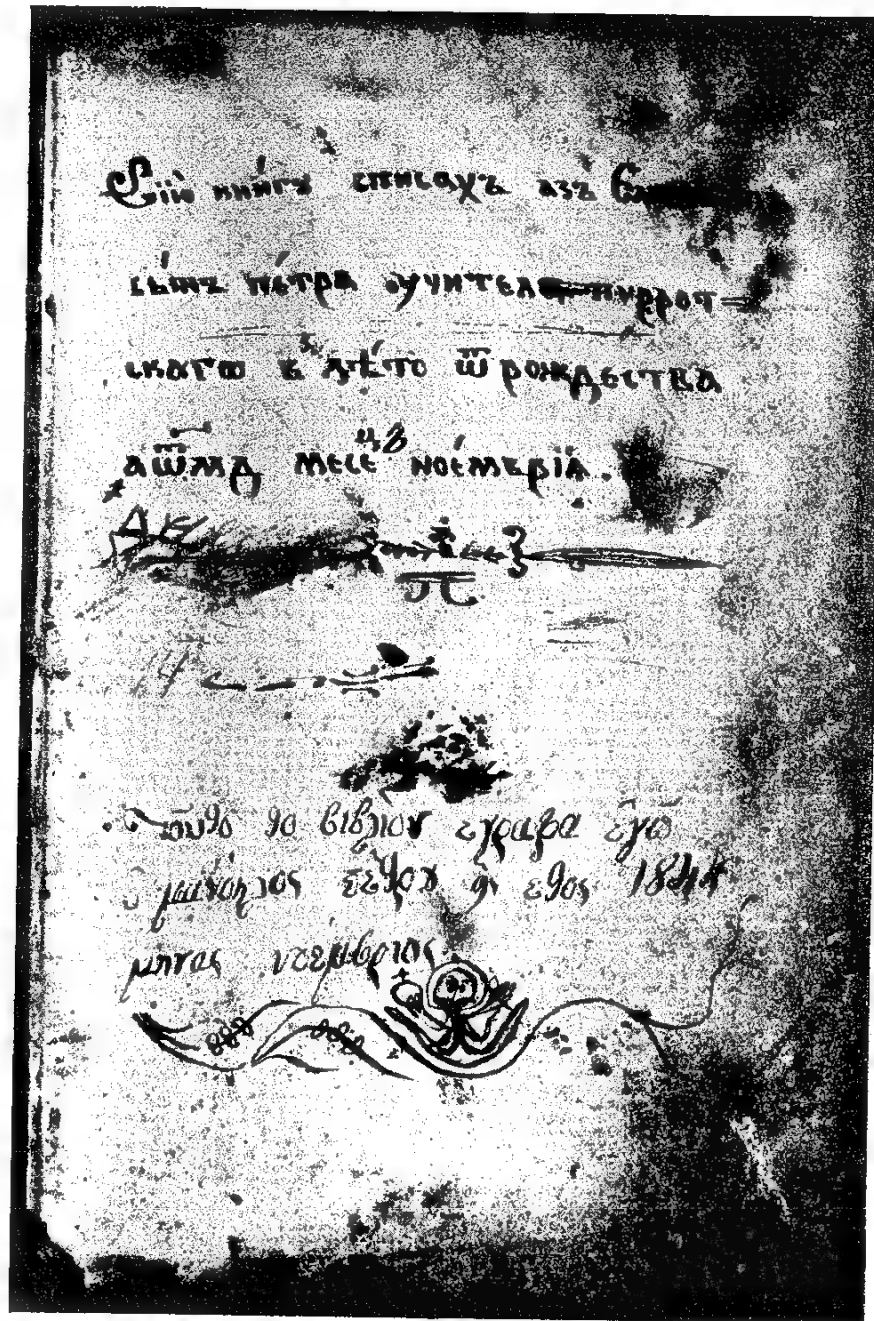 Сїю книгꙋ списахъ азъ
сынъ пе́тра ᲂучителѧ пиррот-
скагѡ в лѣ́то ѿ рождьства
аѿмд месецъ ное́мврїа.
14
τουθο θο βιβλιον εγραφα εγω
μανοηλος πεθρου ης εθος 1844
μηνας νοεμβριος